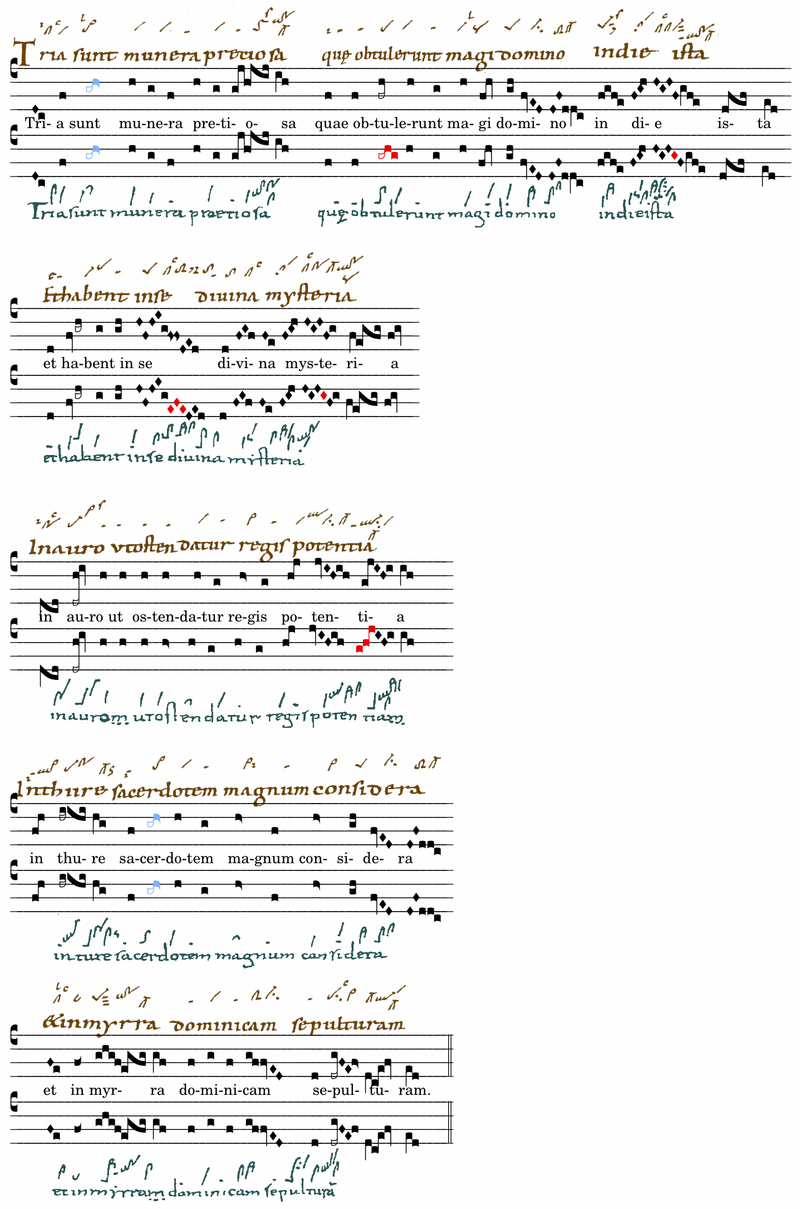 Tria sunt munera pretiosa quę obtulerunt magi domino in die ista
Tri- a sunt mu-ne-ra pre-ti- o- sa quae ob-tu-le-runt ma- gi do-mi- no in di- e is- ta
Tria sunt munera praetiosa quę obtulerunt magi domino in die ista
Et habent in se diuina mysteria
et ha-bent in se di-vi- na mys-te- ri- a
et habent in se diuina mysteria
In auro vt ostendatur regis potentia
in au-ro ut os-ten-da-tur re-gis po- ten- ti- a
in aurom ut ostendatur regis poten tiam
In thure sacerdotem magnum considera
in thu- re sa-cer-do-tem ma-gnum con- si- de- ra
in ture sacerdotem magnum considera
Et in myrra dominicam sepulturam
et in myr- ra do-mi-ni-cam se-pul- tu- ram.
et in myrram dominicam sepulturā